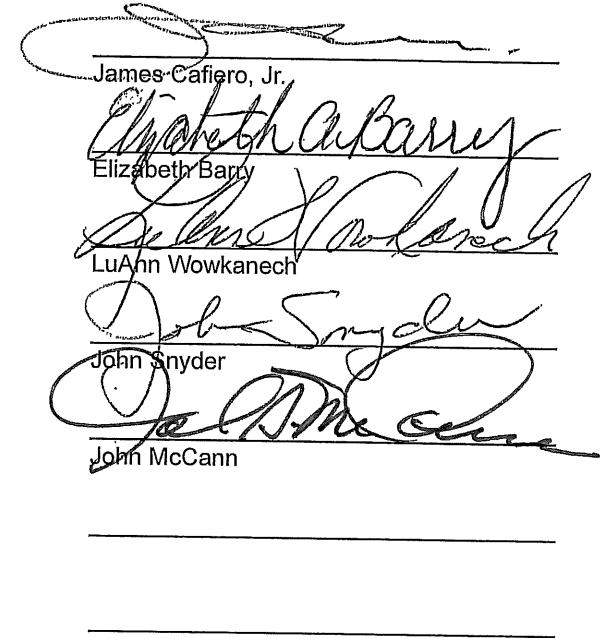 James Cafiero, Jr.
Elizabeth A Barry
Elizabeth Barry
LuAnn Wowkanech
LuAnn Wowkanech
John Snyder
John Snyder
McCann
John McCann